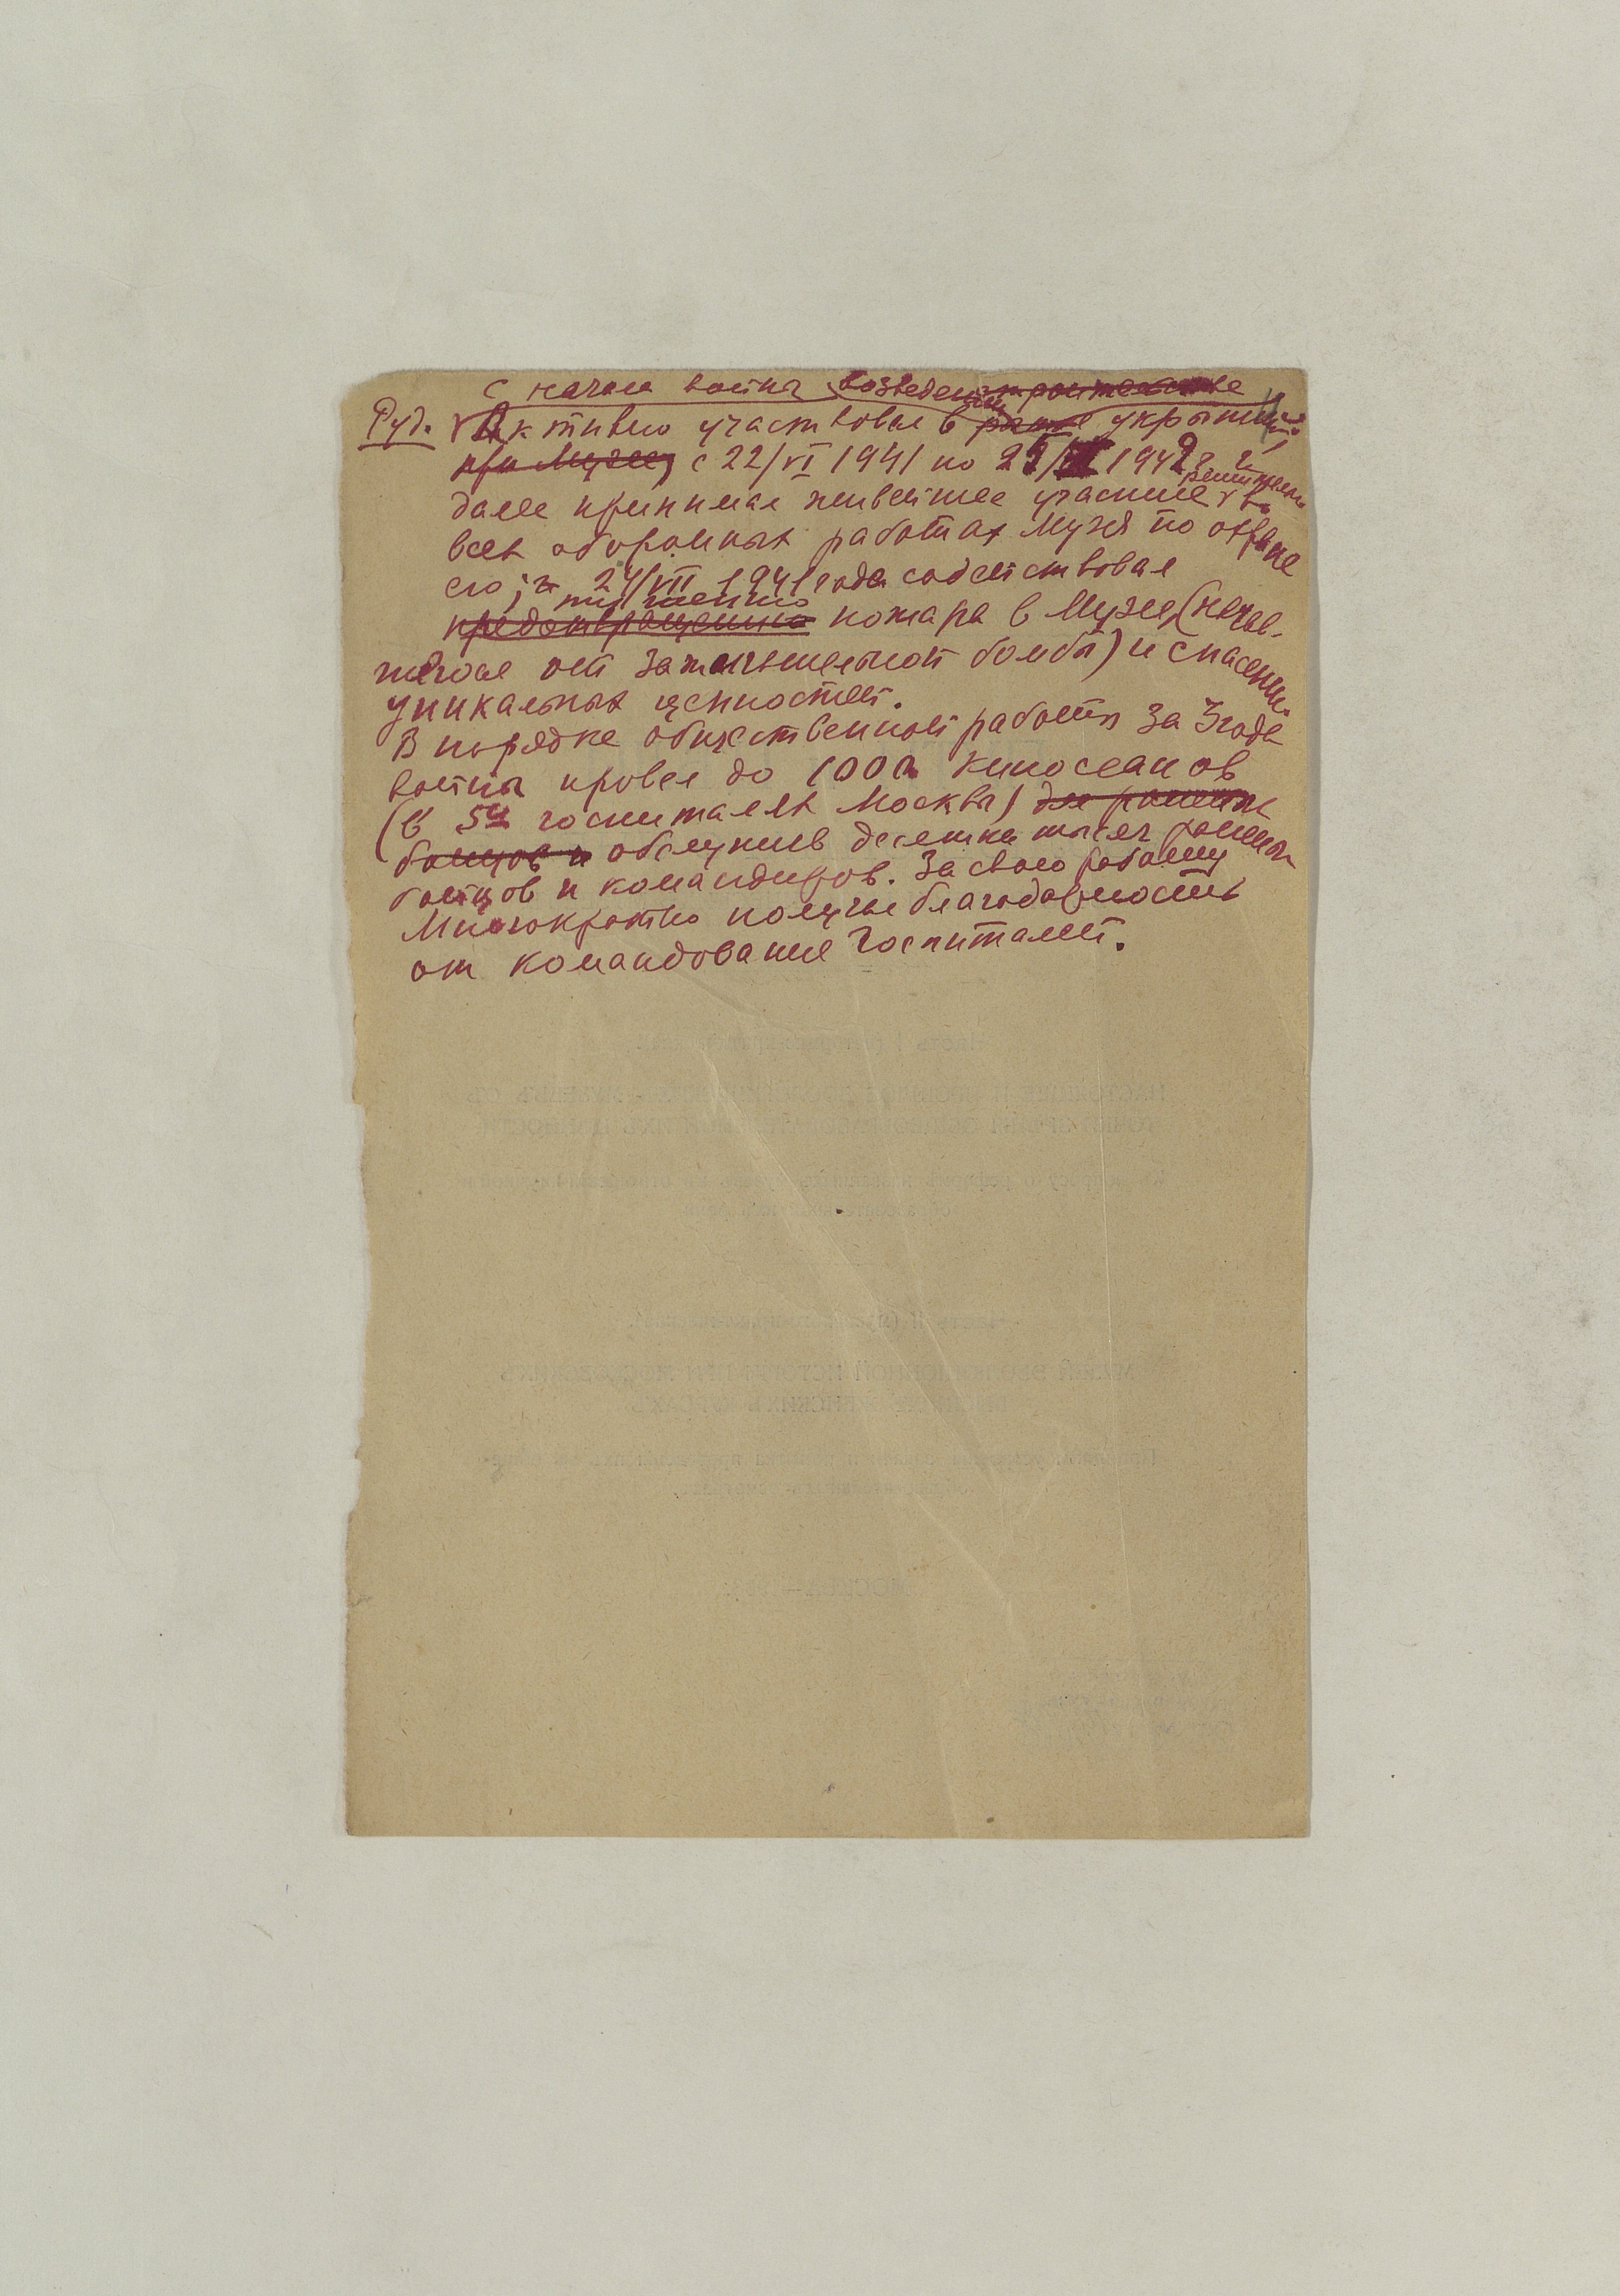 с начала войны возведении строительстве
Руд. Активно участвовал в укрытий
при Музее, с 22/VI 1941 по 1942 г. и
далее принимал живейшее участие решительно во
всех оборонных работах Музея по охране
его; 24/VII 1941 года содействовал
предотвращению пожара в Музее (начав-
шегося от зажигательной бомбы) и спасению
уникальных ценностей.
В порядке общественной работы за 3 года
войны провел до 1000 киносеансов
(в 54 госпиталях Москвы) для раненых
бойцов и обслужив десятки тысяч раненых
бойцов и командиров. За свою работу
Многократно получал благодарность
от командования Госпиталей.